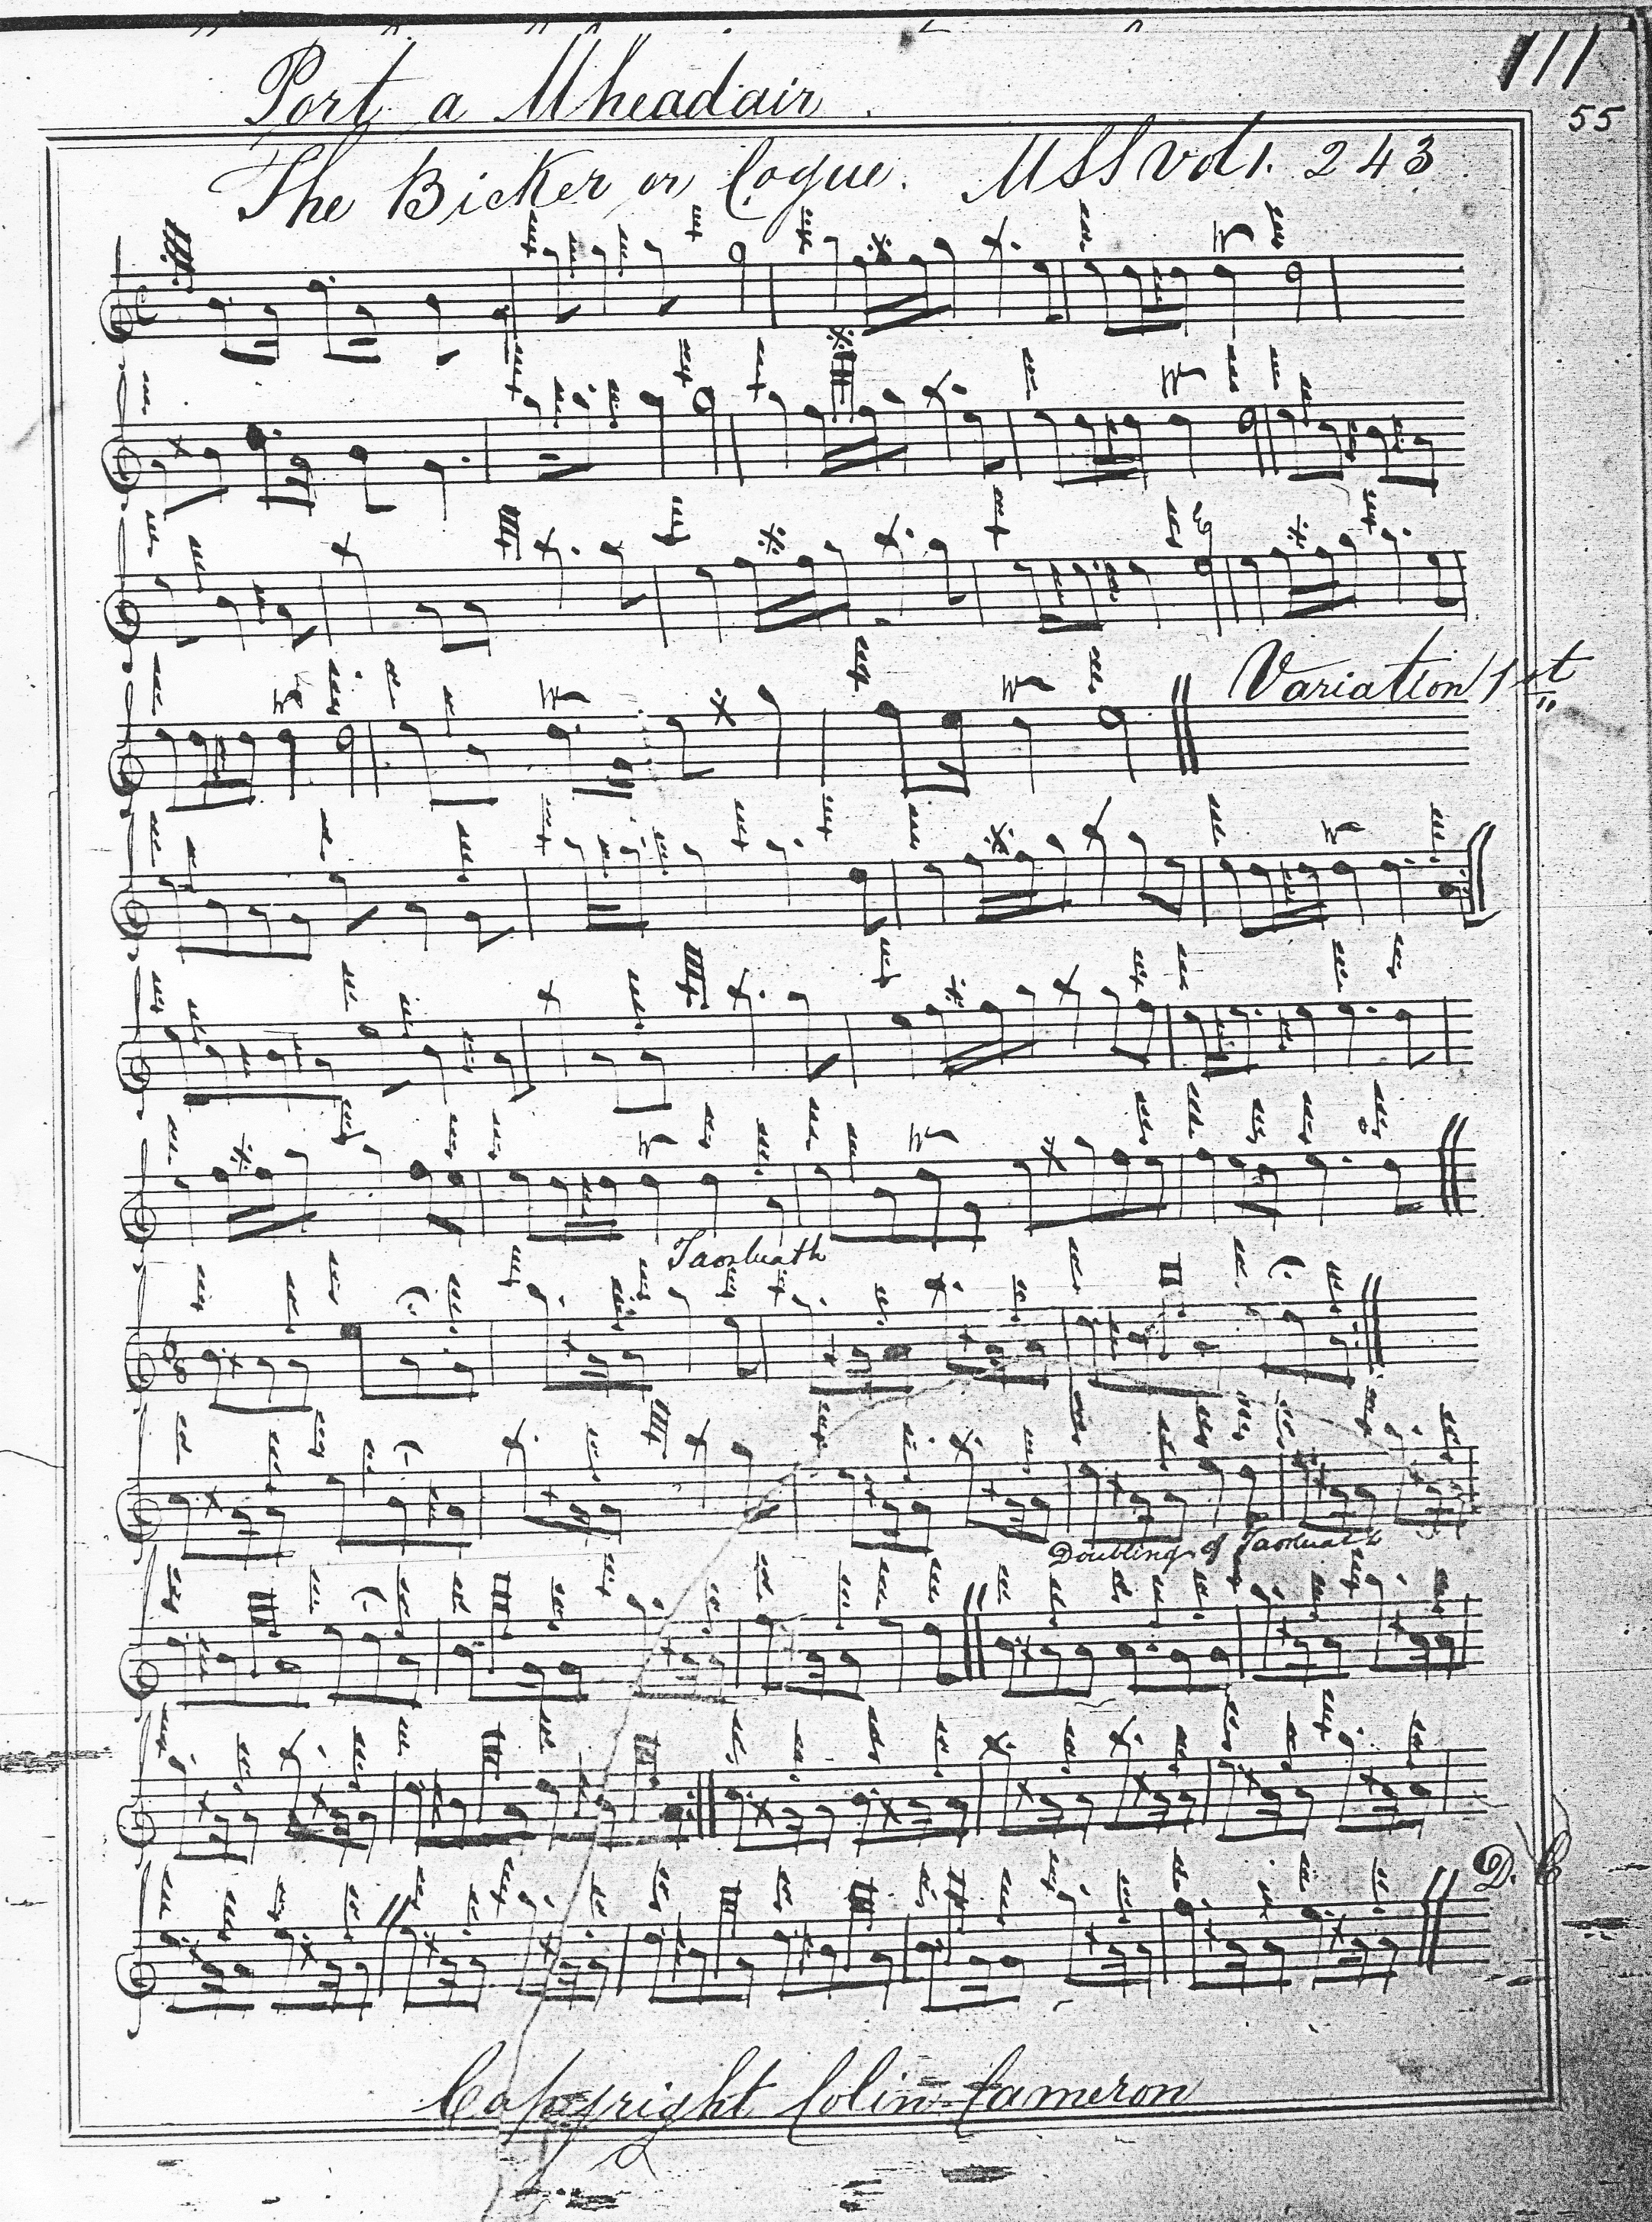 111
Port a Mheadair
55
The Bicker or Cogue. MSS Vol 1. 243
Variation 1st
Taorluath
Doubling of Taorluath
D. C
Copyright Colin Cameron